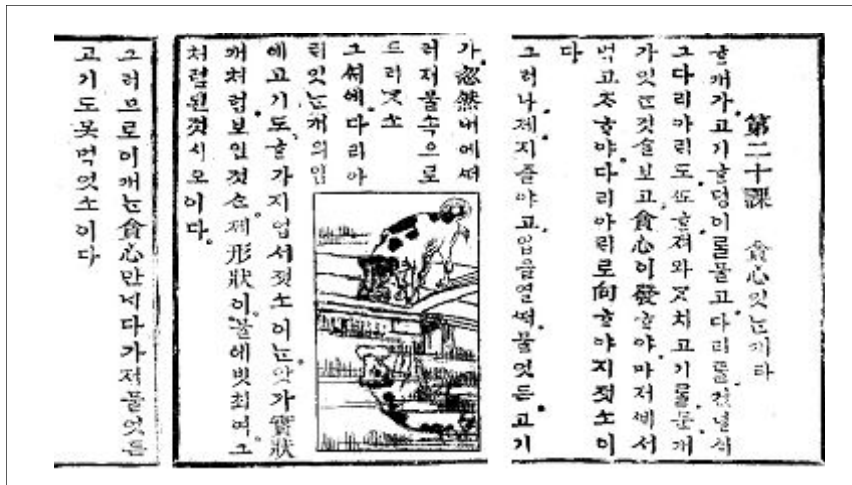 第二十課 貪心잇ᄂᆞᆫ개라
ᄒᆞᆫ개가, 고기ᄒᆞᆫ덩이ᄅᆞᆯ물고다리ᄅᆞᆯ건널ᄉᆡ
그다리아ᄅᆡ도ᄯᅩᄒᆞᆫ져와ᄀᆞᆺ치고기ᄅᆞᆯ문개
가잇ᄂᆞᆫ것슬보고, 貪心이發ᄒᆞ야, 마저ᄲᅢ서
먹고ᄌᆞᄒᆞ야다리아ᄅᆡ로向ᄒᆞ야지젓소이
다
그러나, 제지즐야고, 입을열ᄯᅢ, 물엇든고기
가, 忽然ᄂᆡ에ᄯᅥ
러저물속으로
드러ᄀᆞᆺ소
그ᄯᅢ에, 다리아
ᄅᆡ잇ᄂᆞᆫ개의입
에고기도, ᄒᆞᆫ가지업서젓소이ᄂᆞᆫ앗가實狀
개처럼보인것슨제形狀이, 물에빗최여, 그
처럼된것시오이다.
그러므로이개ᄂᆞᆫ貪心만ᄂᆡ다가저물엇든
고기도못먹엇소이다